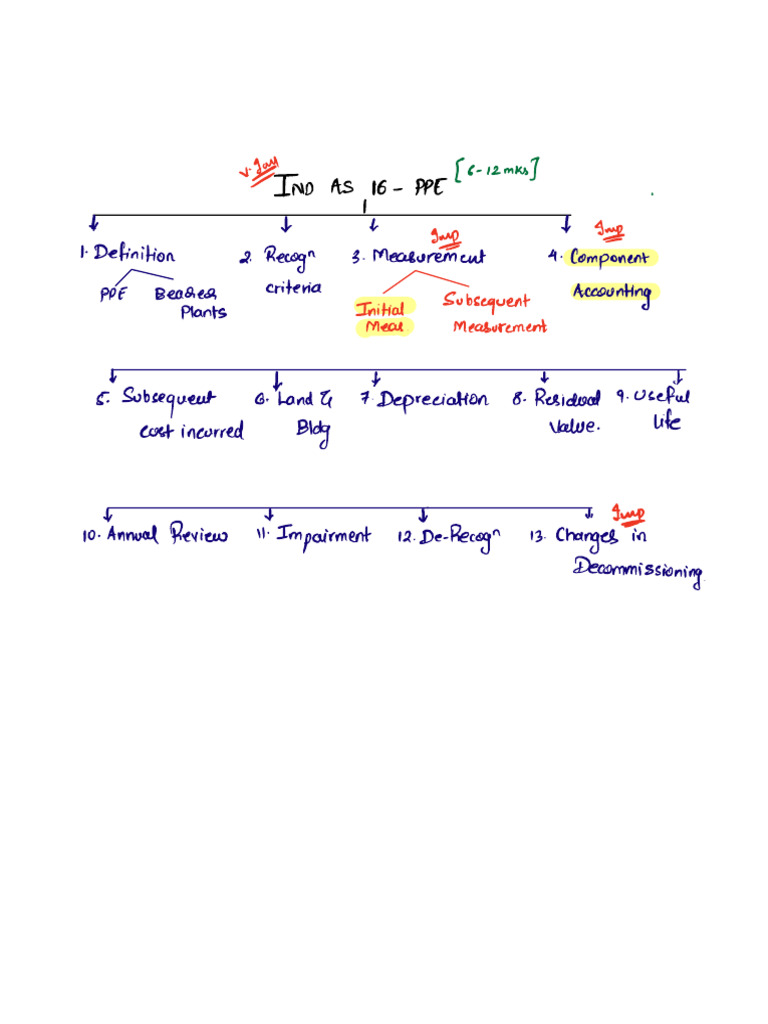 IND AS 16 - PPE [6-12 mks]
Imp
Imp
1. Definition 2. Recogn criteria 3. Measurement 4. Component Accounting
PPE Bearer Plants
Initial Meas
Subsequent Measurement
5. Subsequent cost incurred 6. Land & Bldg 7. Depreciation 8. Residual value. 9. Useful life
Imp
10. Annual Review 11. Impairment 12. De-Recogn 13. Changes in Decommissioning